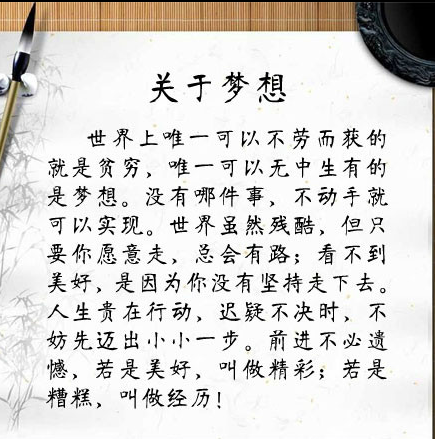 关于梦想
世界上唯一可以不劳而获的
就是贫穷，唯一可以无中生有的
是梦想。没有哪件事，不动手就
可以实现。世界虽然残酷，但只
要你愿意走，总会有路；看不到
美好，是因为你没有坚持走下去。
人生贵在行动，迟疑不决时，不
妨先迈出小小一步。前进不必遗
憾，若是美好，叫做精彩；若是
糟糕，叫做经历！